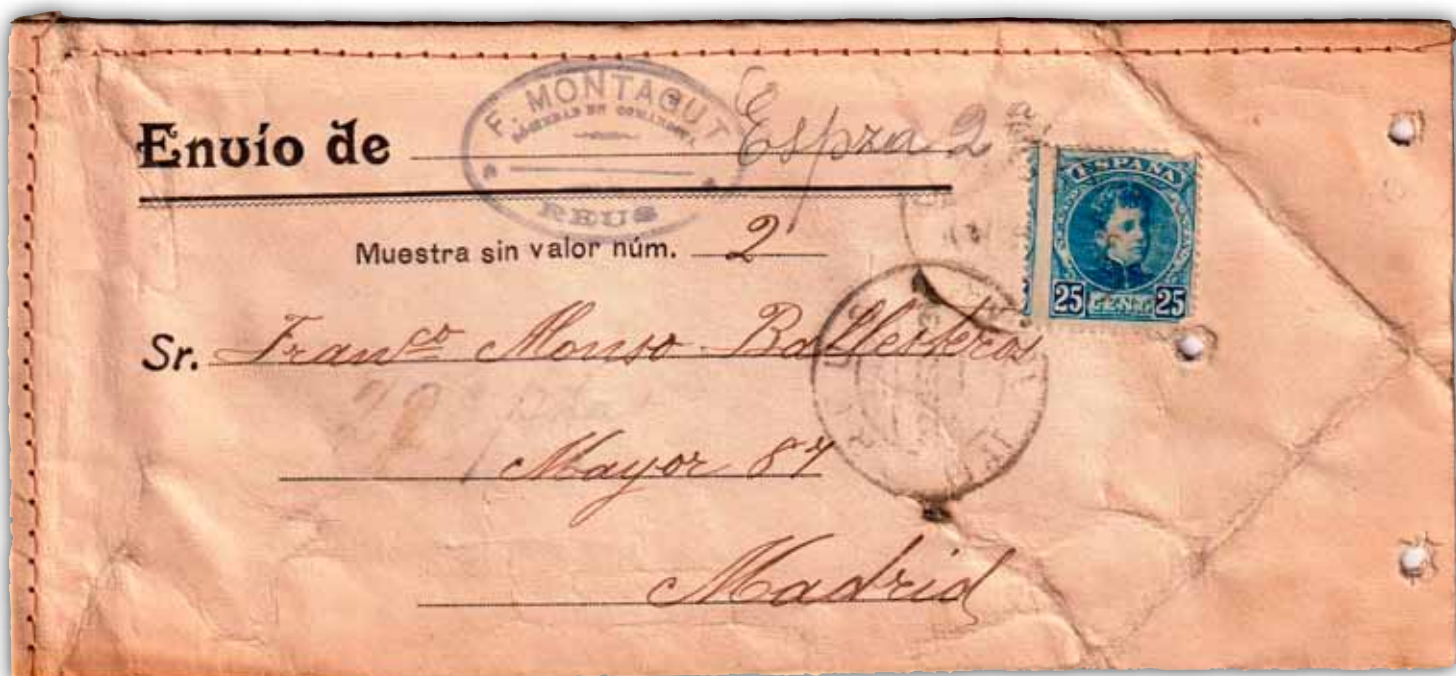 F. MONTAGUT
REUS
Envío de Espza 2ª
Muestra sin valor núm. 2
ESPAÑA
25 25
Sr. Franco Alonso Ballesteros
Mayor 87
Madrid